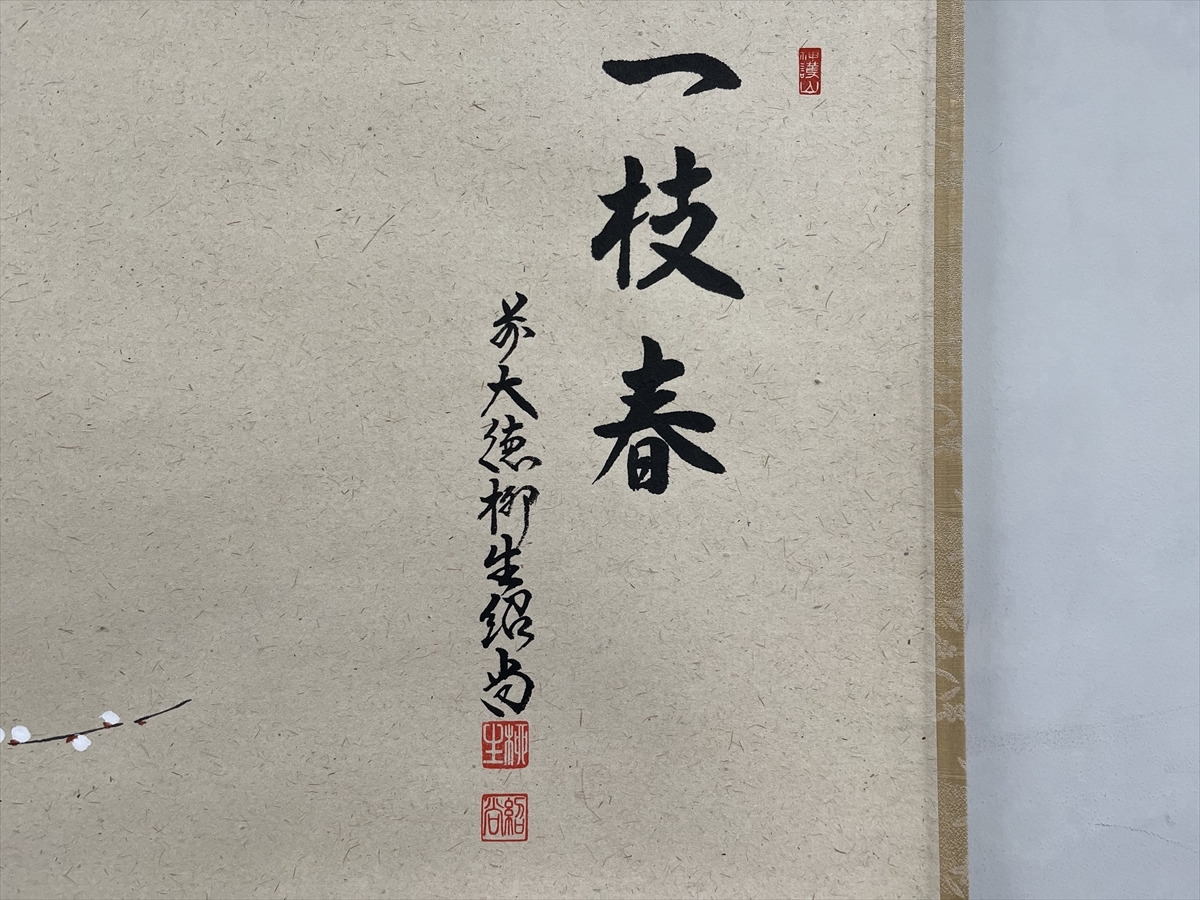 神護山
一枝春
前大徳柳生紹尚
柳生
紹尚